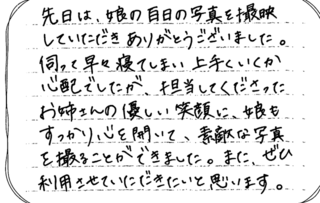 先日は、娘の百日の写真を撮影
していただき ありがとうございました。
伺って早々寝てしまい 上手くいくか
心配でしたが、担当してくださった
お姉さんの優しい笑顔に、娘も
すっかり心を開いて、素敵な写真
を撮ることができました。また、ぜひ
利用させていただきたいと思います。